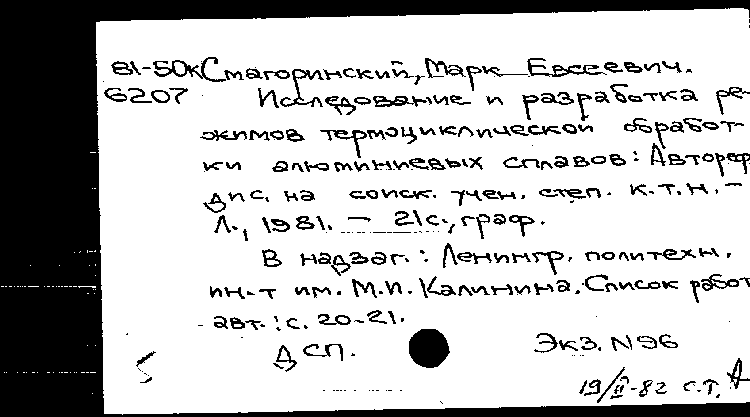 81-50к Смагоринский, Марк Евсеевич.
6207 Исследование и разработка ре-
жимов термоциклической обработ-
ки алюминиевых сплавов: Автореф.
дис. на соиск. учен. степ. к.т.н. -
Л., 1981. - 21с., граф.
В надзаг.: Ленингр. политехн.
ин-т им. М.И. Калинина. Список работ
авт.: с. 20-21.
ДСП. Экз. N96
19/II-82 с.т.